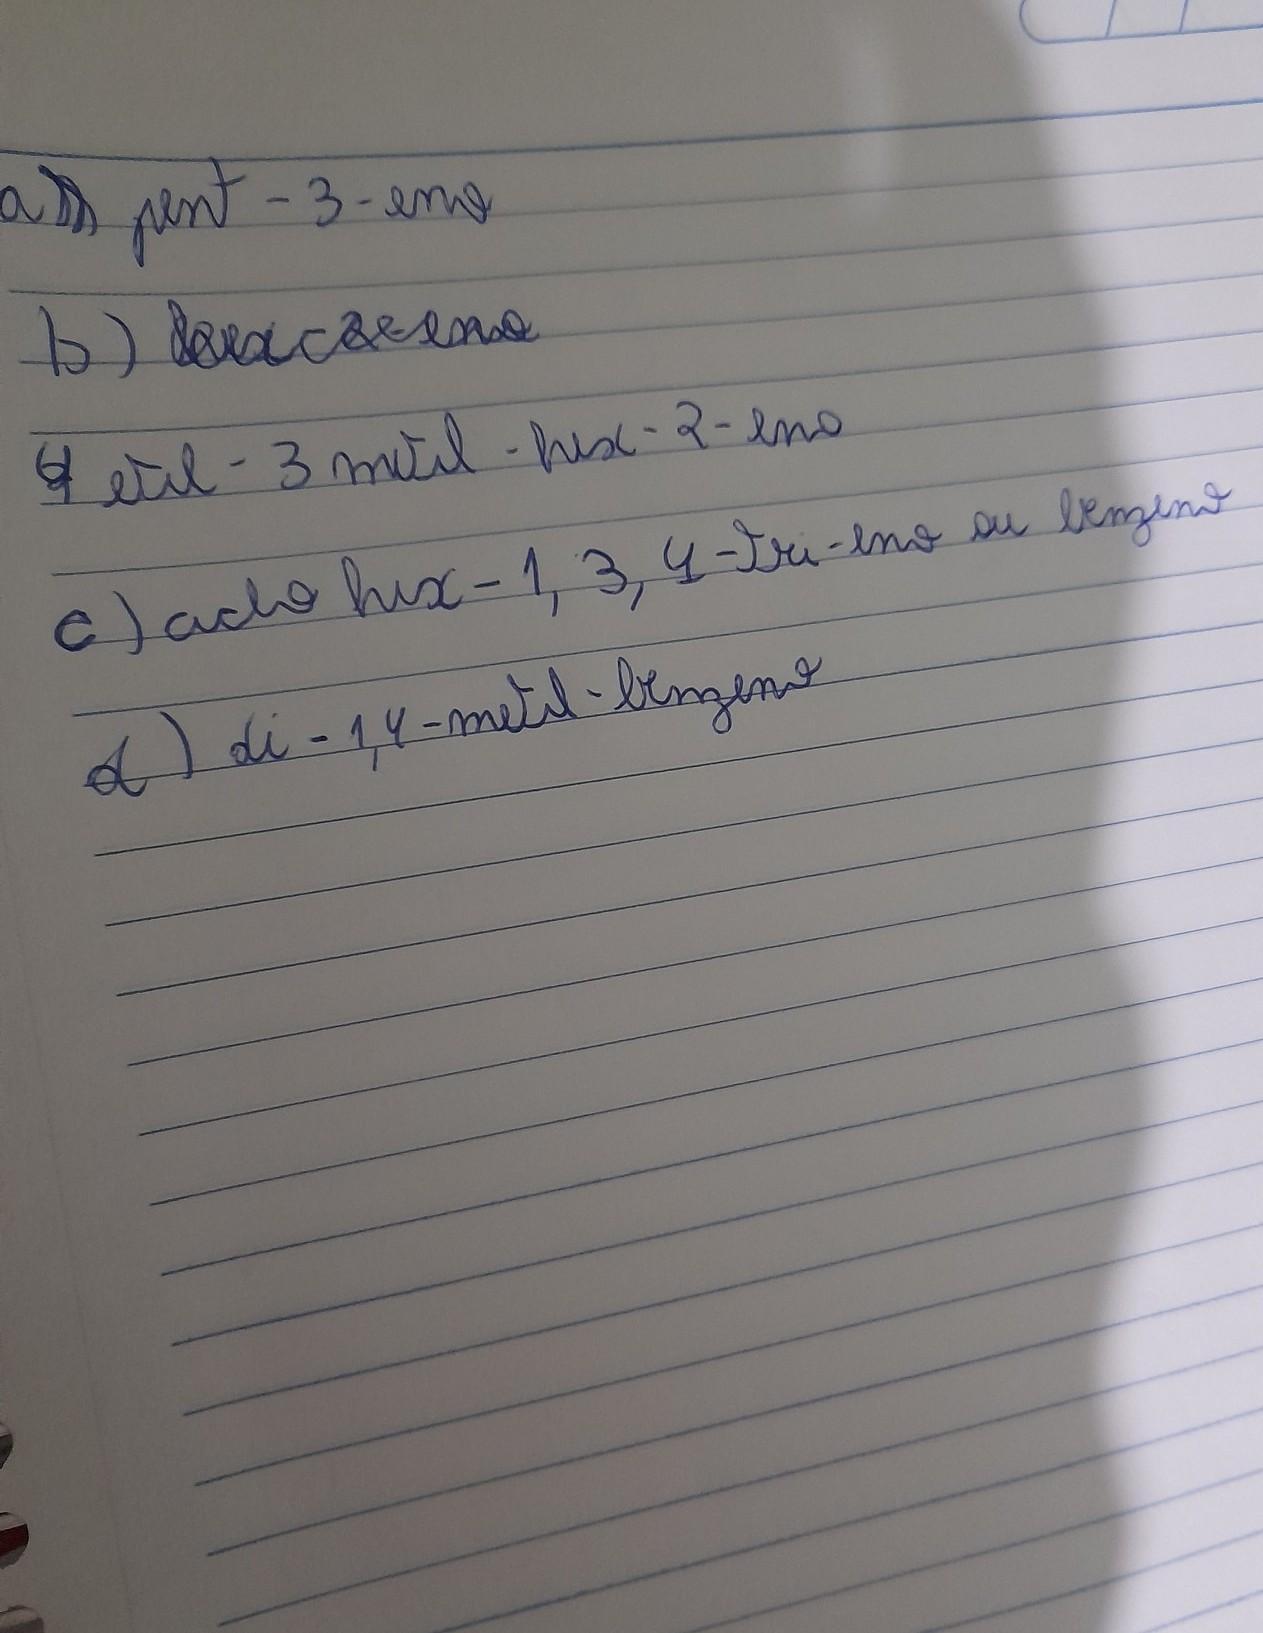 a) pent - 3 - eno
b)
4 etil - 3 metil - hex - 2 - eno
c) ciclo hex - 1, 3, 4 - tri - eno ou benzeno
d) di - 1,4 - metil - benzeno